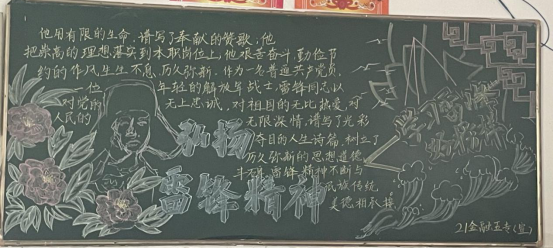 他用有限的生命,谱写了奉献的赞歌;他
把崇高的理想落实到本职岗位上,他艰苦奋斗、勤俭节
约的作风生生不息,历久弥新。作为一名普通共产党员,
一位年轻的解放军战士,雷锋同志以
对党的无上忠诚,对祖国的无比热爱,对
人民的无限深情,谱写了光彩
夺目的人生诗篇,树立了
历久弥新的思想道德
丰碑。雷锋精神不断与
民族传统
美德相承接
弘扬
雷锋精神
学习雷锋
好榜样
21金融五专